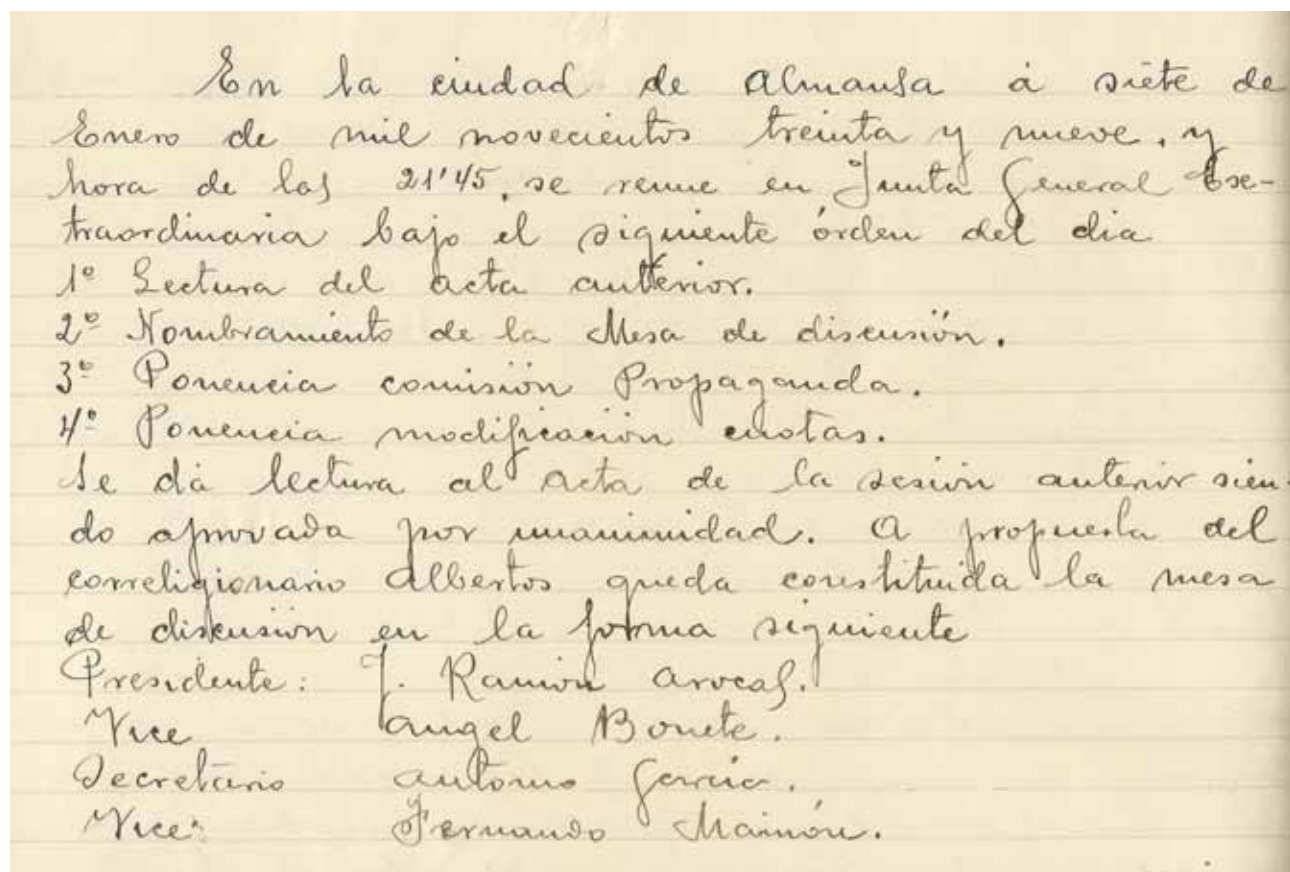 En la ciudad de Almansa á siete de
Enero de mil novecientos treinta y nueve, y
hora de las 21'45, se reune en Junta General Ex-
traordinaria bajo el siguiente órden del dia
1º Lectura del acta anterior.
2º Nombramiento de la Mesa de discusión.
3º Ponencia comisión Propaganda.
4º Ponencia modificación cuotas.
Se dá lectura al acta de la sesión anterior sien-
do aprovada por unanimidad. A propuesta del
correligionario Albertos queda constituida la mesa
de discusion en la forma siguiente
Presidente: J. Ramón Arocas.
Vice Angel Bonete.
Secretario Antonio García.
Vice: Fernando Maimón.